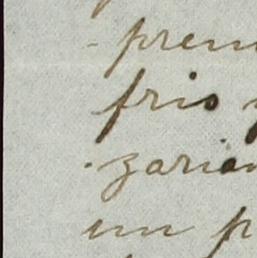 - prem
fris
zarian
un p